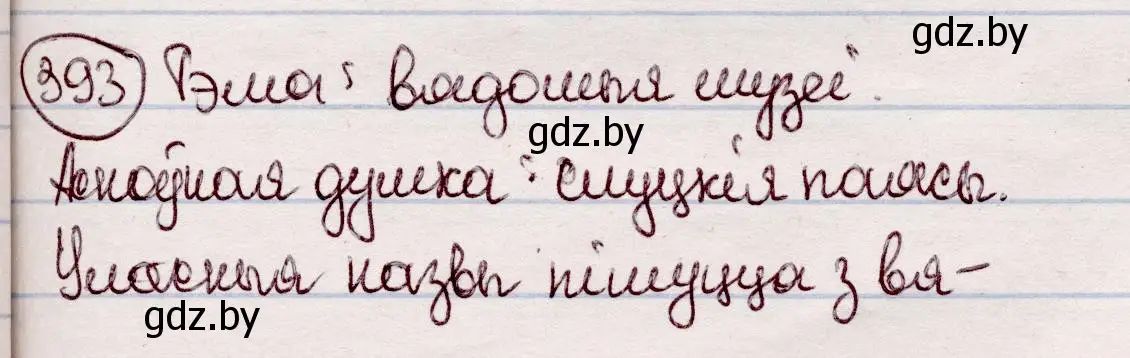 gdz.by
393 Тэма: вядомыя музеі.
gdz.by
Асноўная думка: слуцкія паясы.
Уласныя назвы пішуцца з вя-
gdz.by